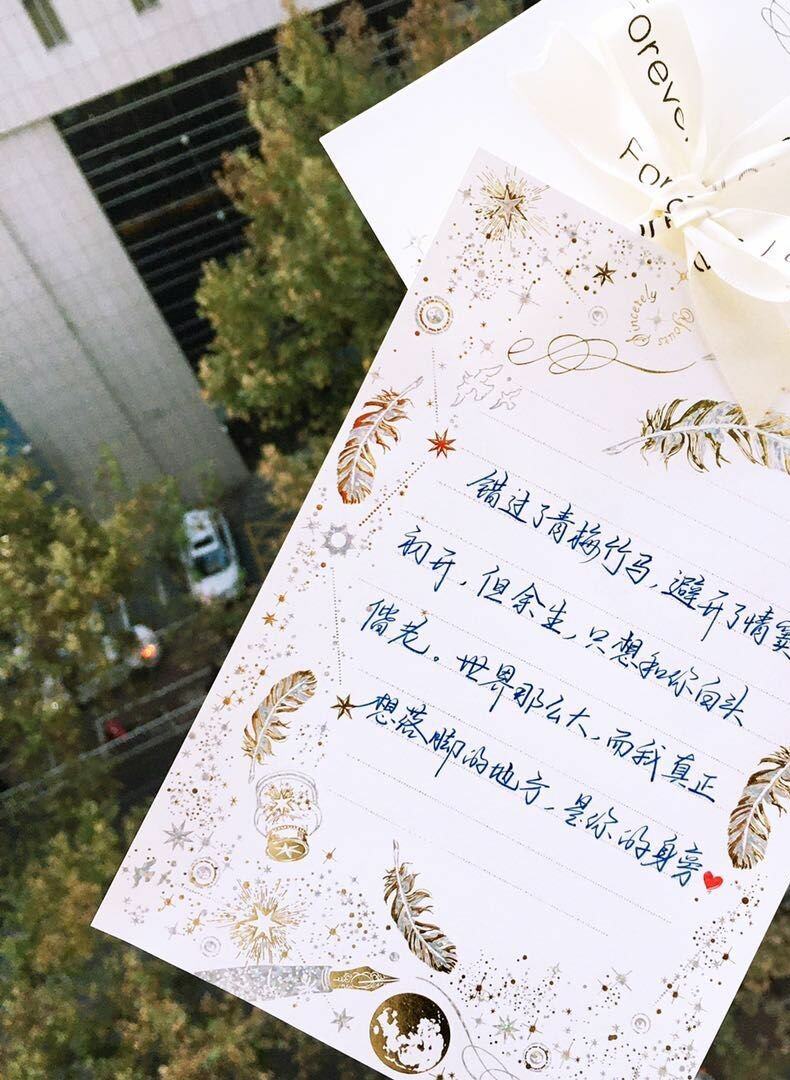 Foreve
For
Sincerely
Yours
错过了青梅竹马，避开了情窦
初开，但余生，只想和你白头
偕老。世界那么大，而我真正
想落脚的地方，是你的身旁